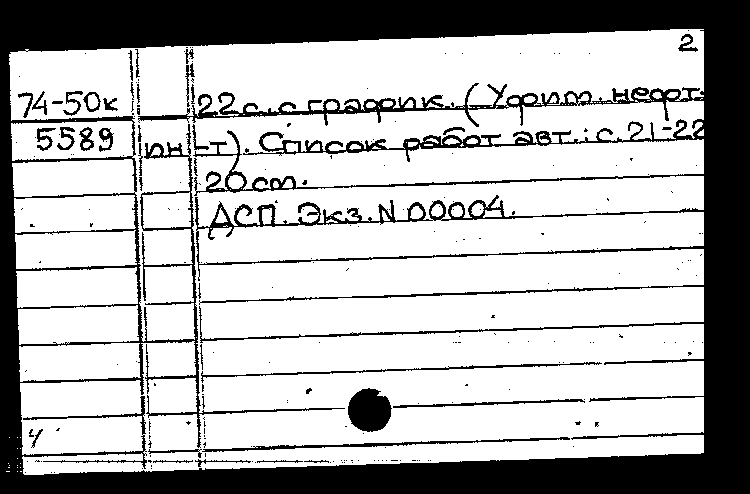 2
74-50к 22 с. с график. (Уфим. нефт.
5589 ин-т). Список работ авт.: с. 21-22
20 см.
ДСП. Экз. N 00004.